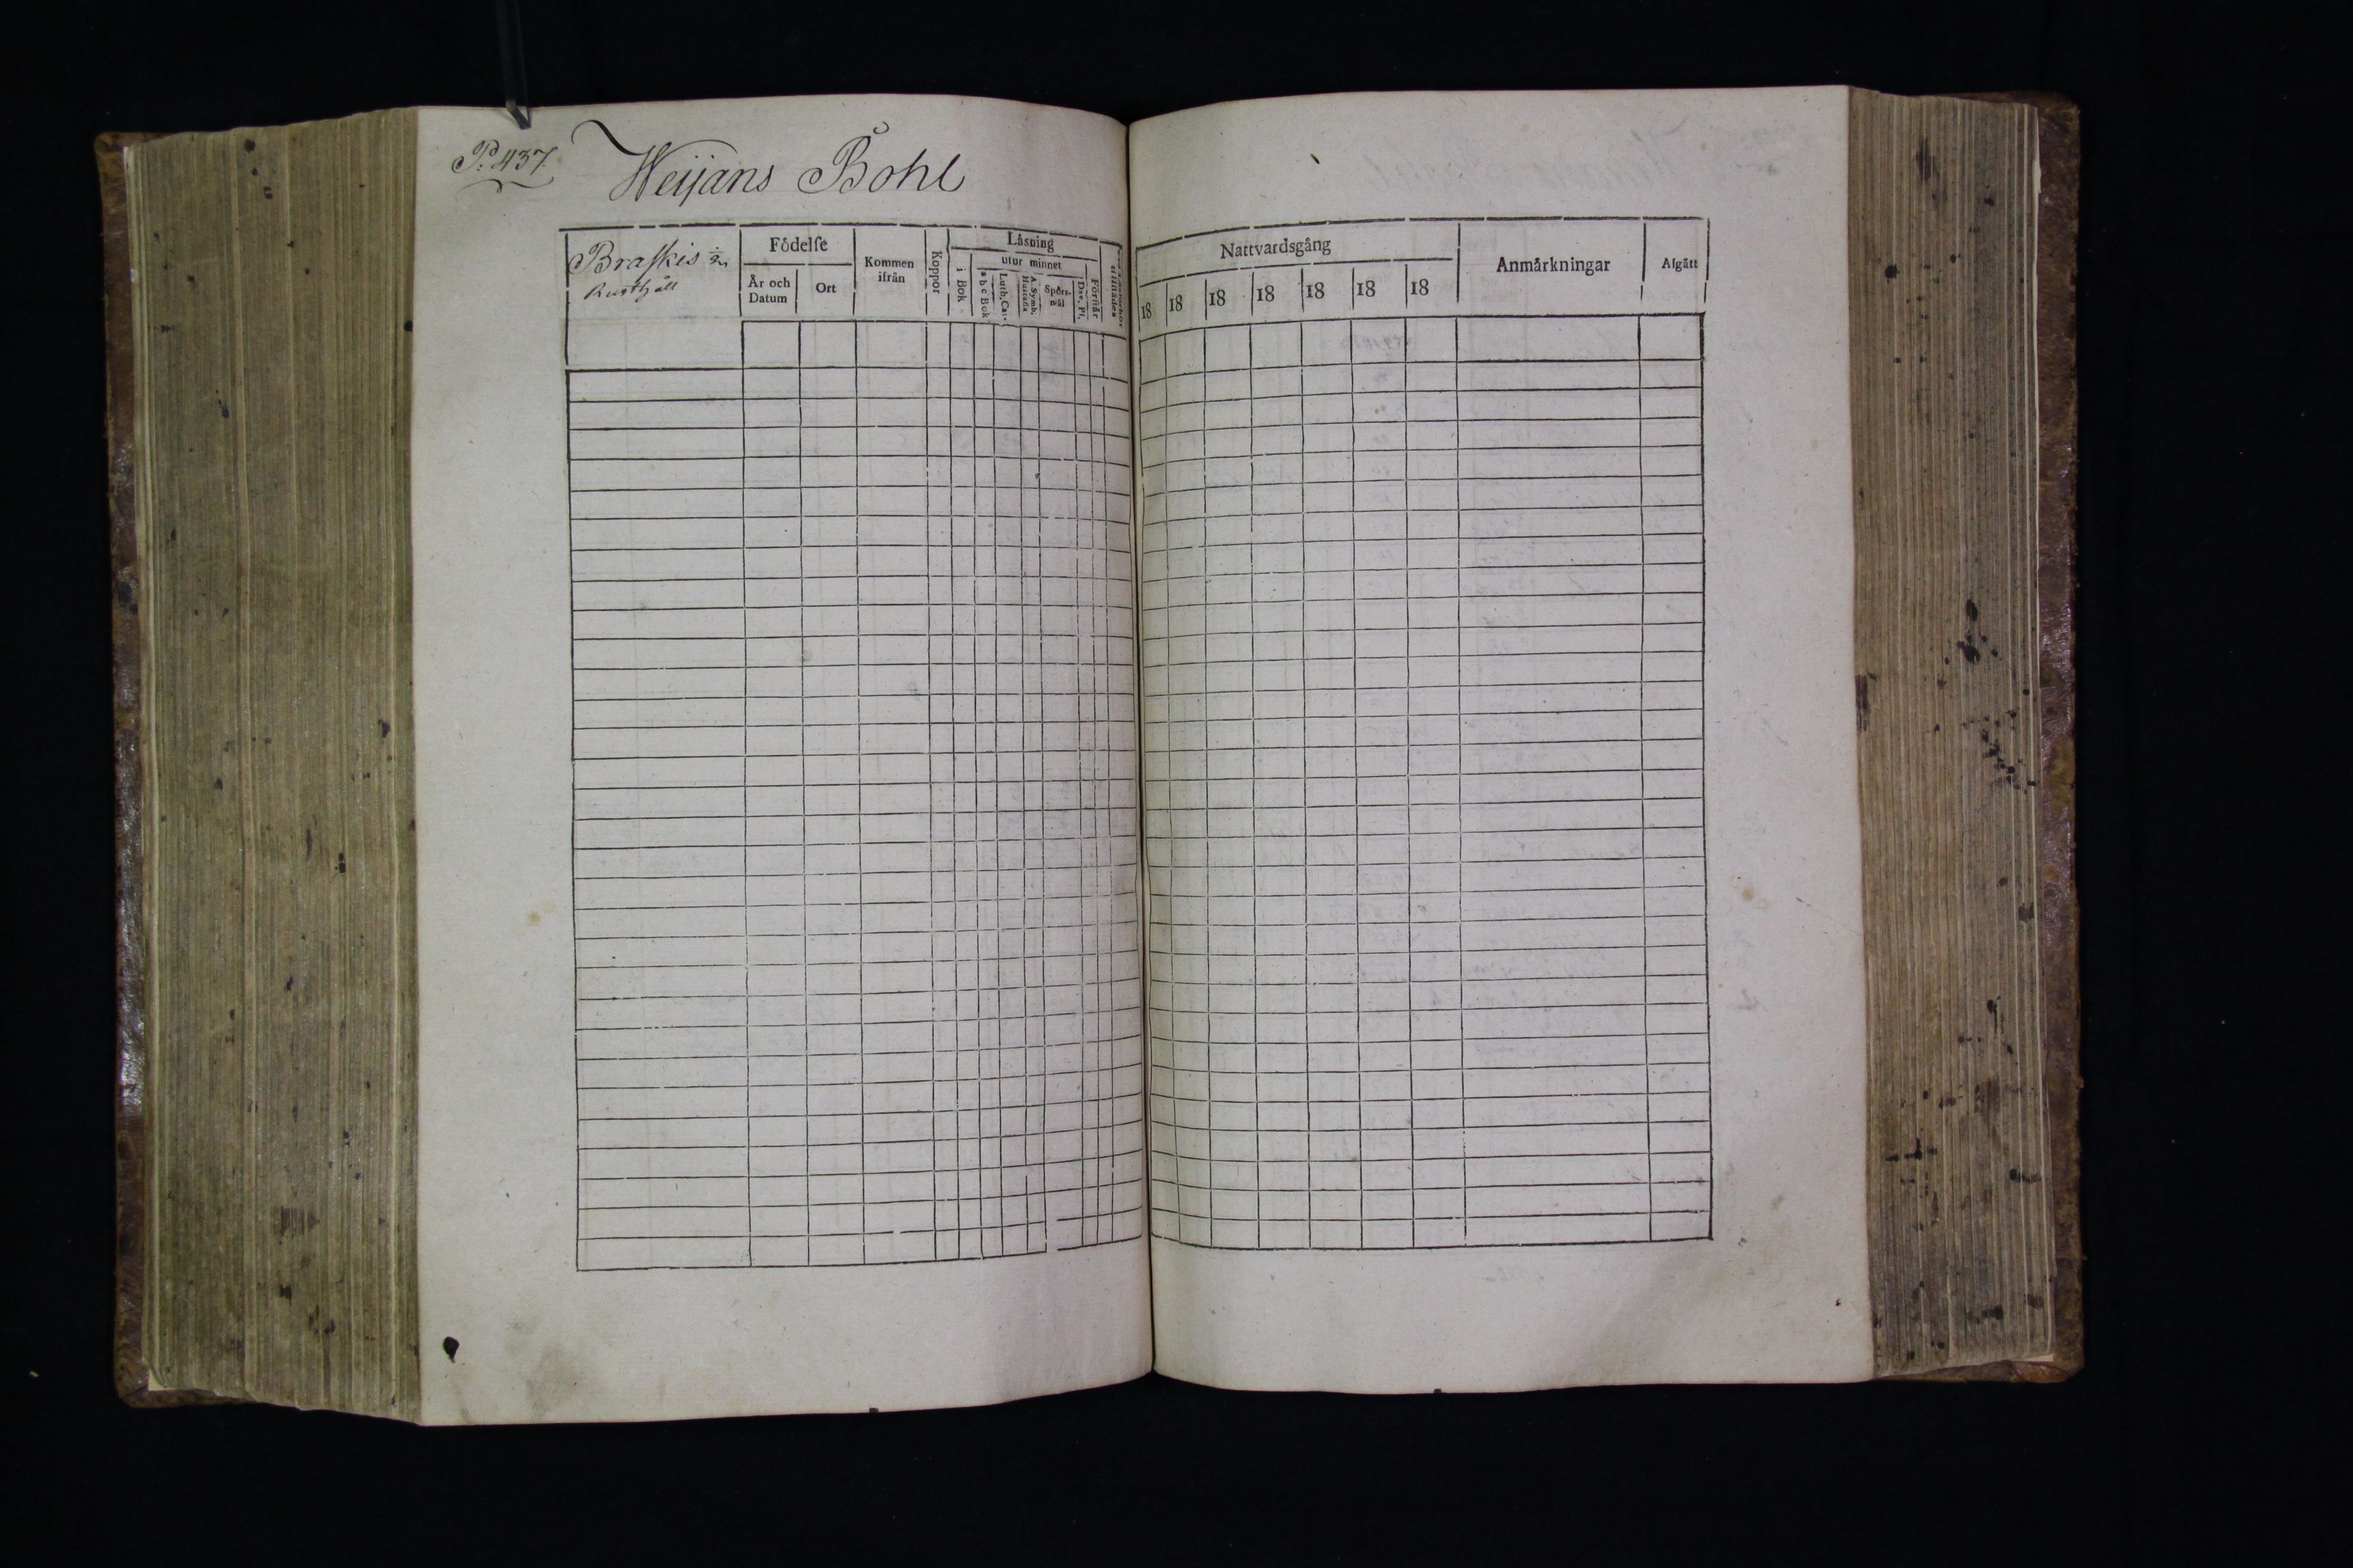 P. 437. Weijans Bohl
Braskis
Rusthåll
Födelse
År och Datum
Ort
Kommen ifrån
Koppor
Läsning
i Bok
utur minnet
a b c Bok
Luth. Cat.
A. Symb. Hustafla
Spörsmål
Dav. Ps.
Förstår
Nattvardsgång
18 18 18 18 18 18 18
Anmärkningar
Afgått